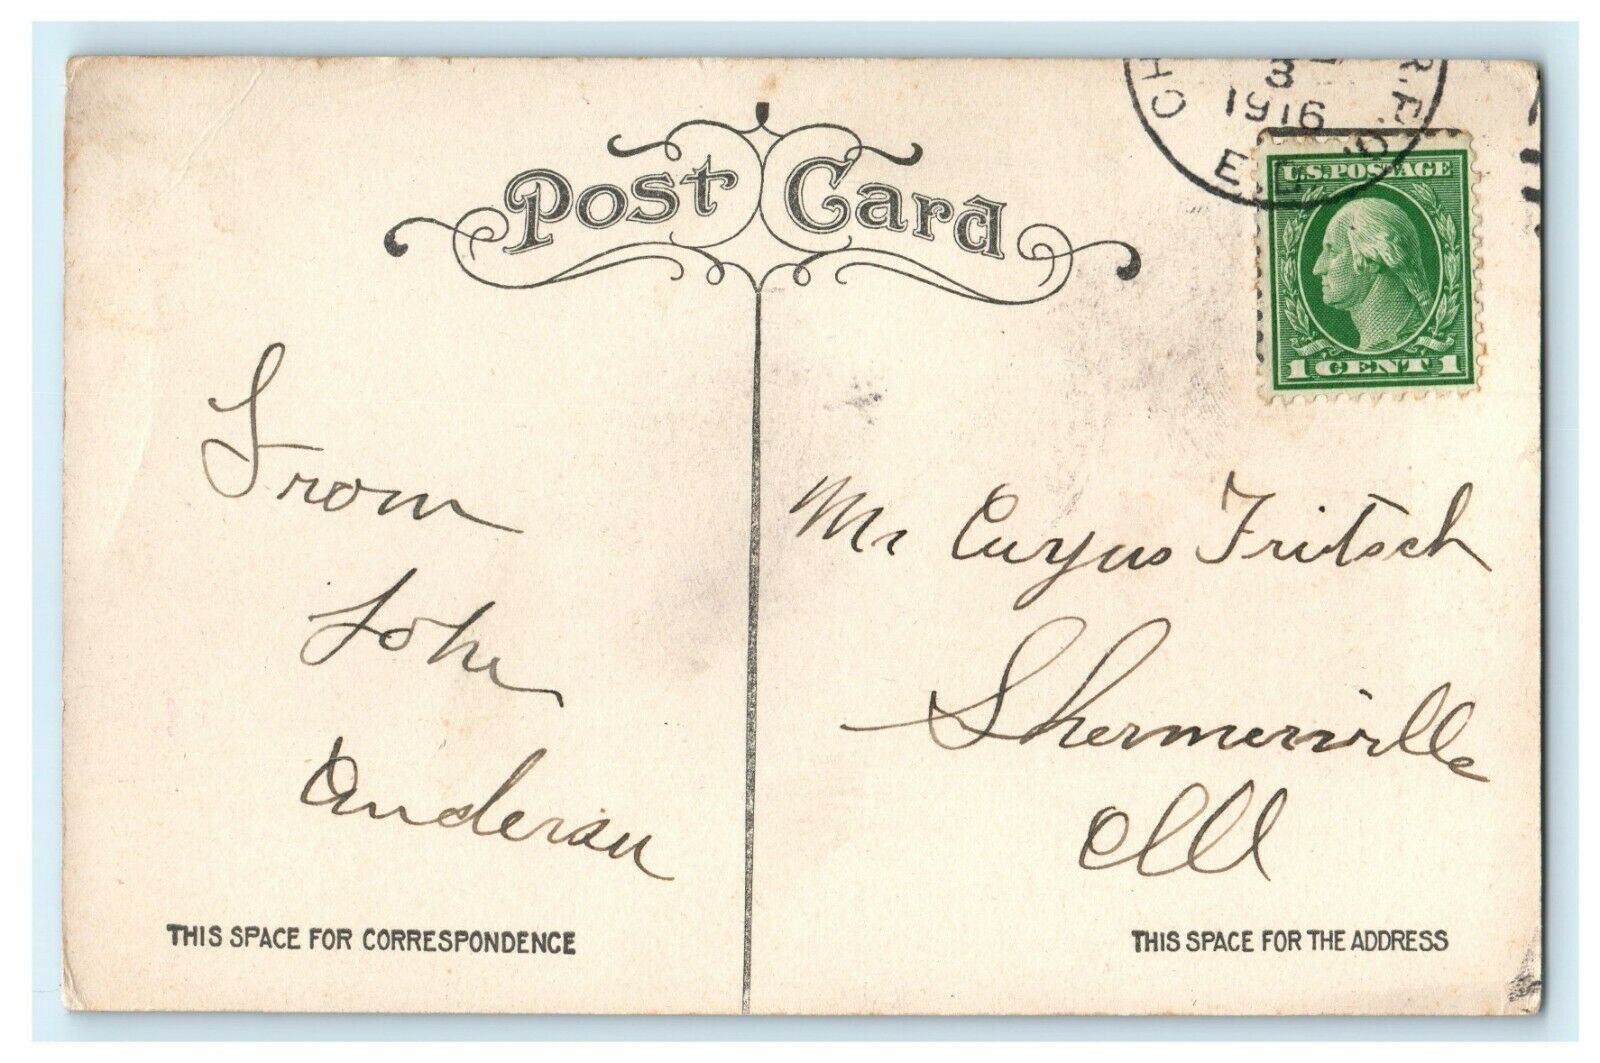 Post Card
3
1916
CH R.P.O.
E.D.
U.S. POSTAGE
1 CENT 1
From
John
Anderson
Mr Fritsch
Shermerville
Ill
THIS SPACE FOR CORRESPONDENCE
THIS SPACE FOR THE ADDRESS